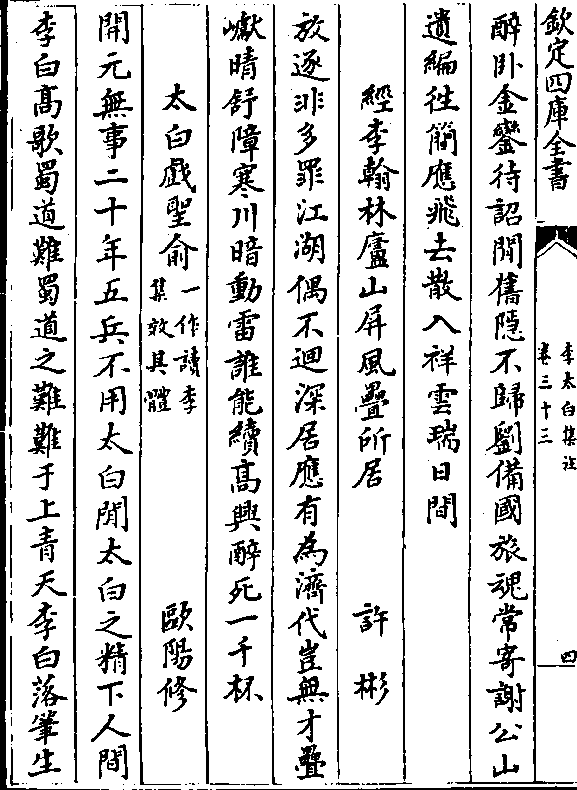 欽定四庫全書
李太白集注
卷三十三
四
醉卧金鑾待詔閒舊隱不歸劉備國旅魂常寄謝公山
遺編往簡應飛去散入祥雲瑞日間
經李翰林廬山屏風疊所居 許彬
放逐非多罪江湖偶不迴深居應有為濟代豈無才疊
巘晴舒障寒川暗動雷誰能續高興醉死一千杯
太白戲聖俞一作讀李集效其體 歐陽修
開元無事二十年五兵不用太白閒太白之精下人間
李白高歌蜀道難蜀道之難難于上青天李白落筆生